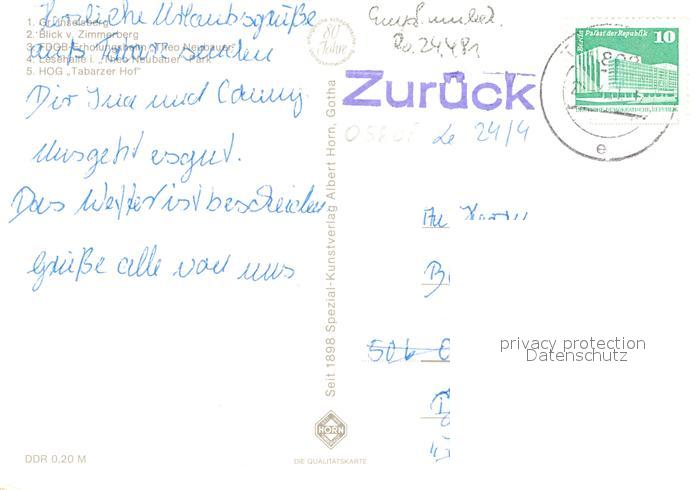 Herzliche Urlaubsgrüße
aus Tabarz senden
Dir Ina und Conny
Uns geht es gut.
Das Wetter ist bescheiden
Grüße alle von uns
1. Großer Inselsberg
2. Blick v. Zimmerberg
3. FDGB-Erholungsheim „Theo Neubauer“
4. Lesehalle i. „Theo Neubauer“ Park
5. HOG „Tabarzer Hof“
DDR 0,20 M
80
Jahre
Seit 1898 Spezial-Kunstverlag Albert Horn, Gotha
HORN
DIE QUALITÄTSKARTE
24.4.81
Zurück
24/4
Berlin Palast der Republik 10
DEUTSCHE DEMOKRATISCHE REPUBLIK
e
506
privacy protection
Datenschutz